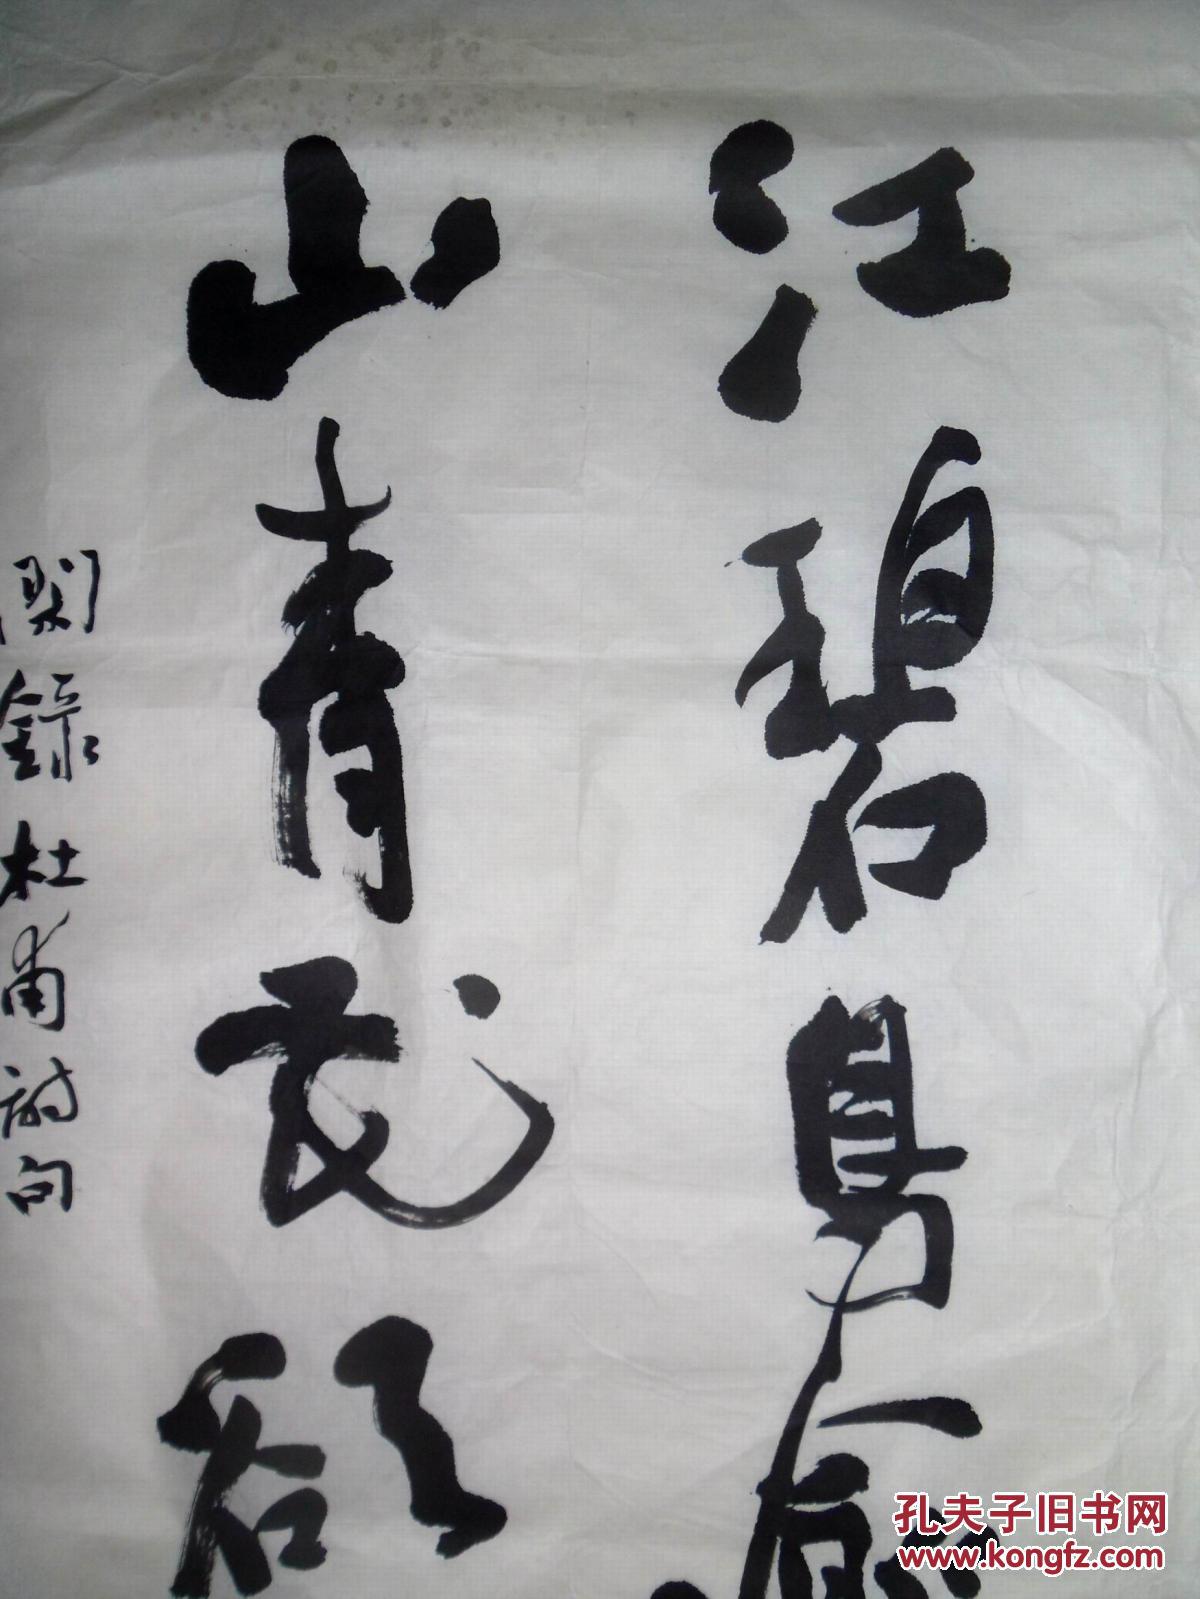 江碧鳥逾
山青花欲
閑錄杜甫詩句
孔夫子旧书网
www.kongfz.com